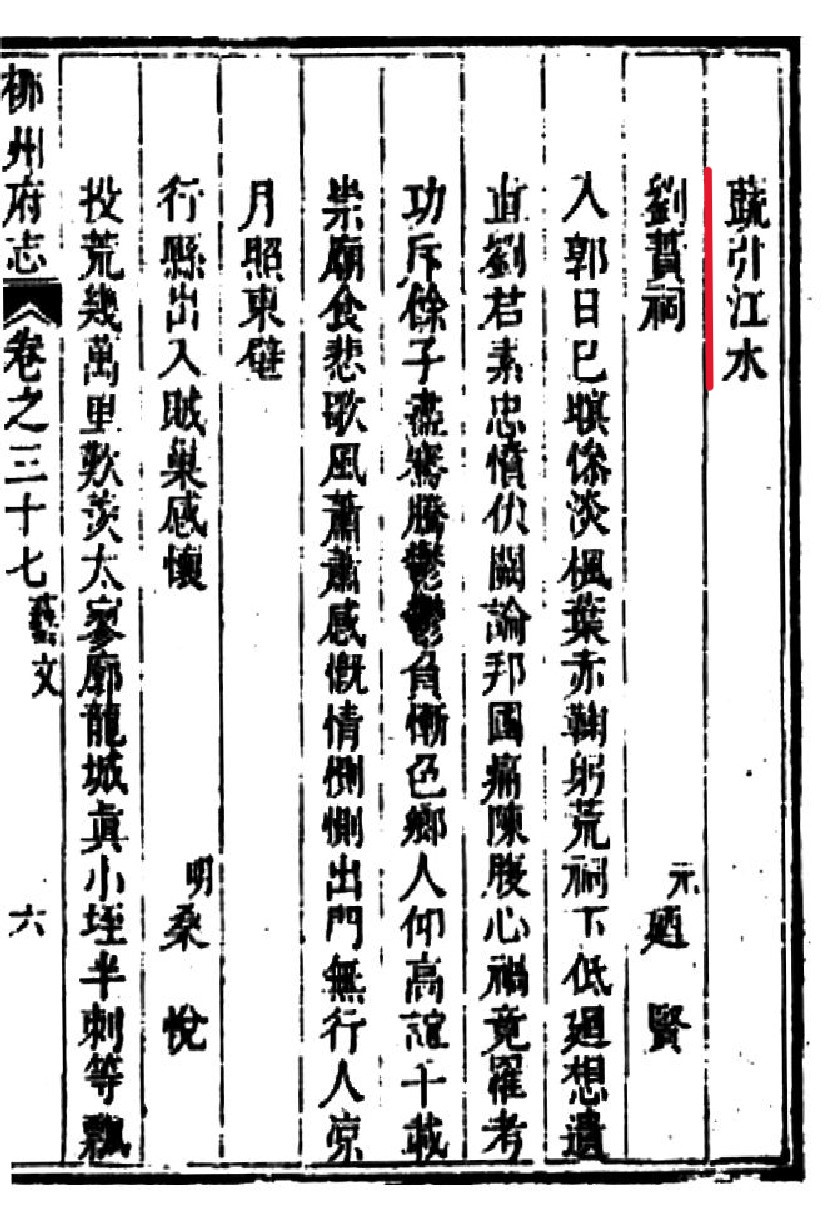 蔬引江水
劉蕡祠
元 廼賢
入郭日已暝慘淡楓葉赤鞠躬荒祠下低廻想遺
直劉君素忠憤伏闕論邦國痛陳腹心禍竟罹考
功斥餘子盡騫騰鬱鬱負慚色鄉人仰高誼千載
崇廟食悲歌風蕭蕭感慨情惻惻出門無行人凉
月照東壁
行縣出入賊巢感懷
明 桑悅
投荒幾萬里歎羨太寥廓龍城真小垤半刺等飄
柳州府志 卷之三十七 藝文 六